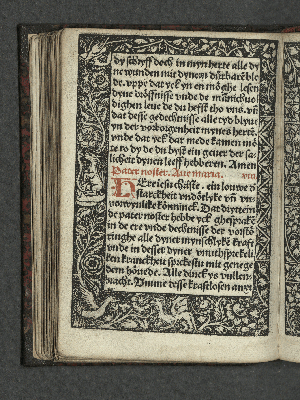 dy schryff doch in myn herte alle dy
ne wunden mit dynem durbarē blo
de. vppe dat yck yn en möghe lesen
dyne dröffnisse vnde de
dighen leue de du hefst tho vns. vn̄
dat desse gedechtnisse alle tyd blyue
yn der vorborgenheit mynes hertē.
vnde dat yck dar mede kamen mö
te to dy de du byst ein geuer der sa
licheit dynen leeff hebberen. Amen
Pater noster. Aue maria.
Here iesu christe. ein louwe d̄
starckheit vndötlyke vn̄ vn
vorwynlike könninck. Dar dyttem
de pater noster hebbe yck ghesprakē
in de ere vnde dechtnisse der vorstö
ringhe alle dyner mynschlykē kraft
vnde in desser dyner vnuthsprekeli
ken kranckheit sprekestu mit genege
dem höuede. Alle dinck ys vullen
bracht. Vmme desse kraftlosen anxt